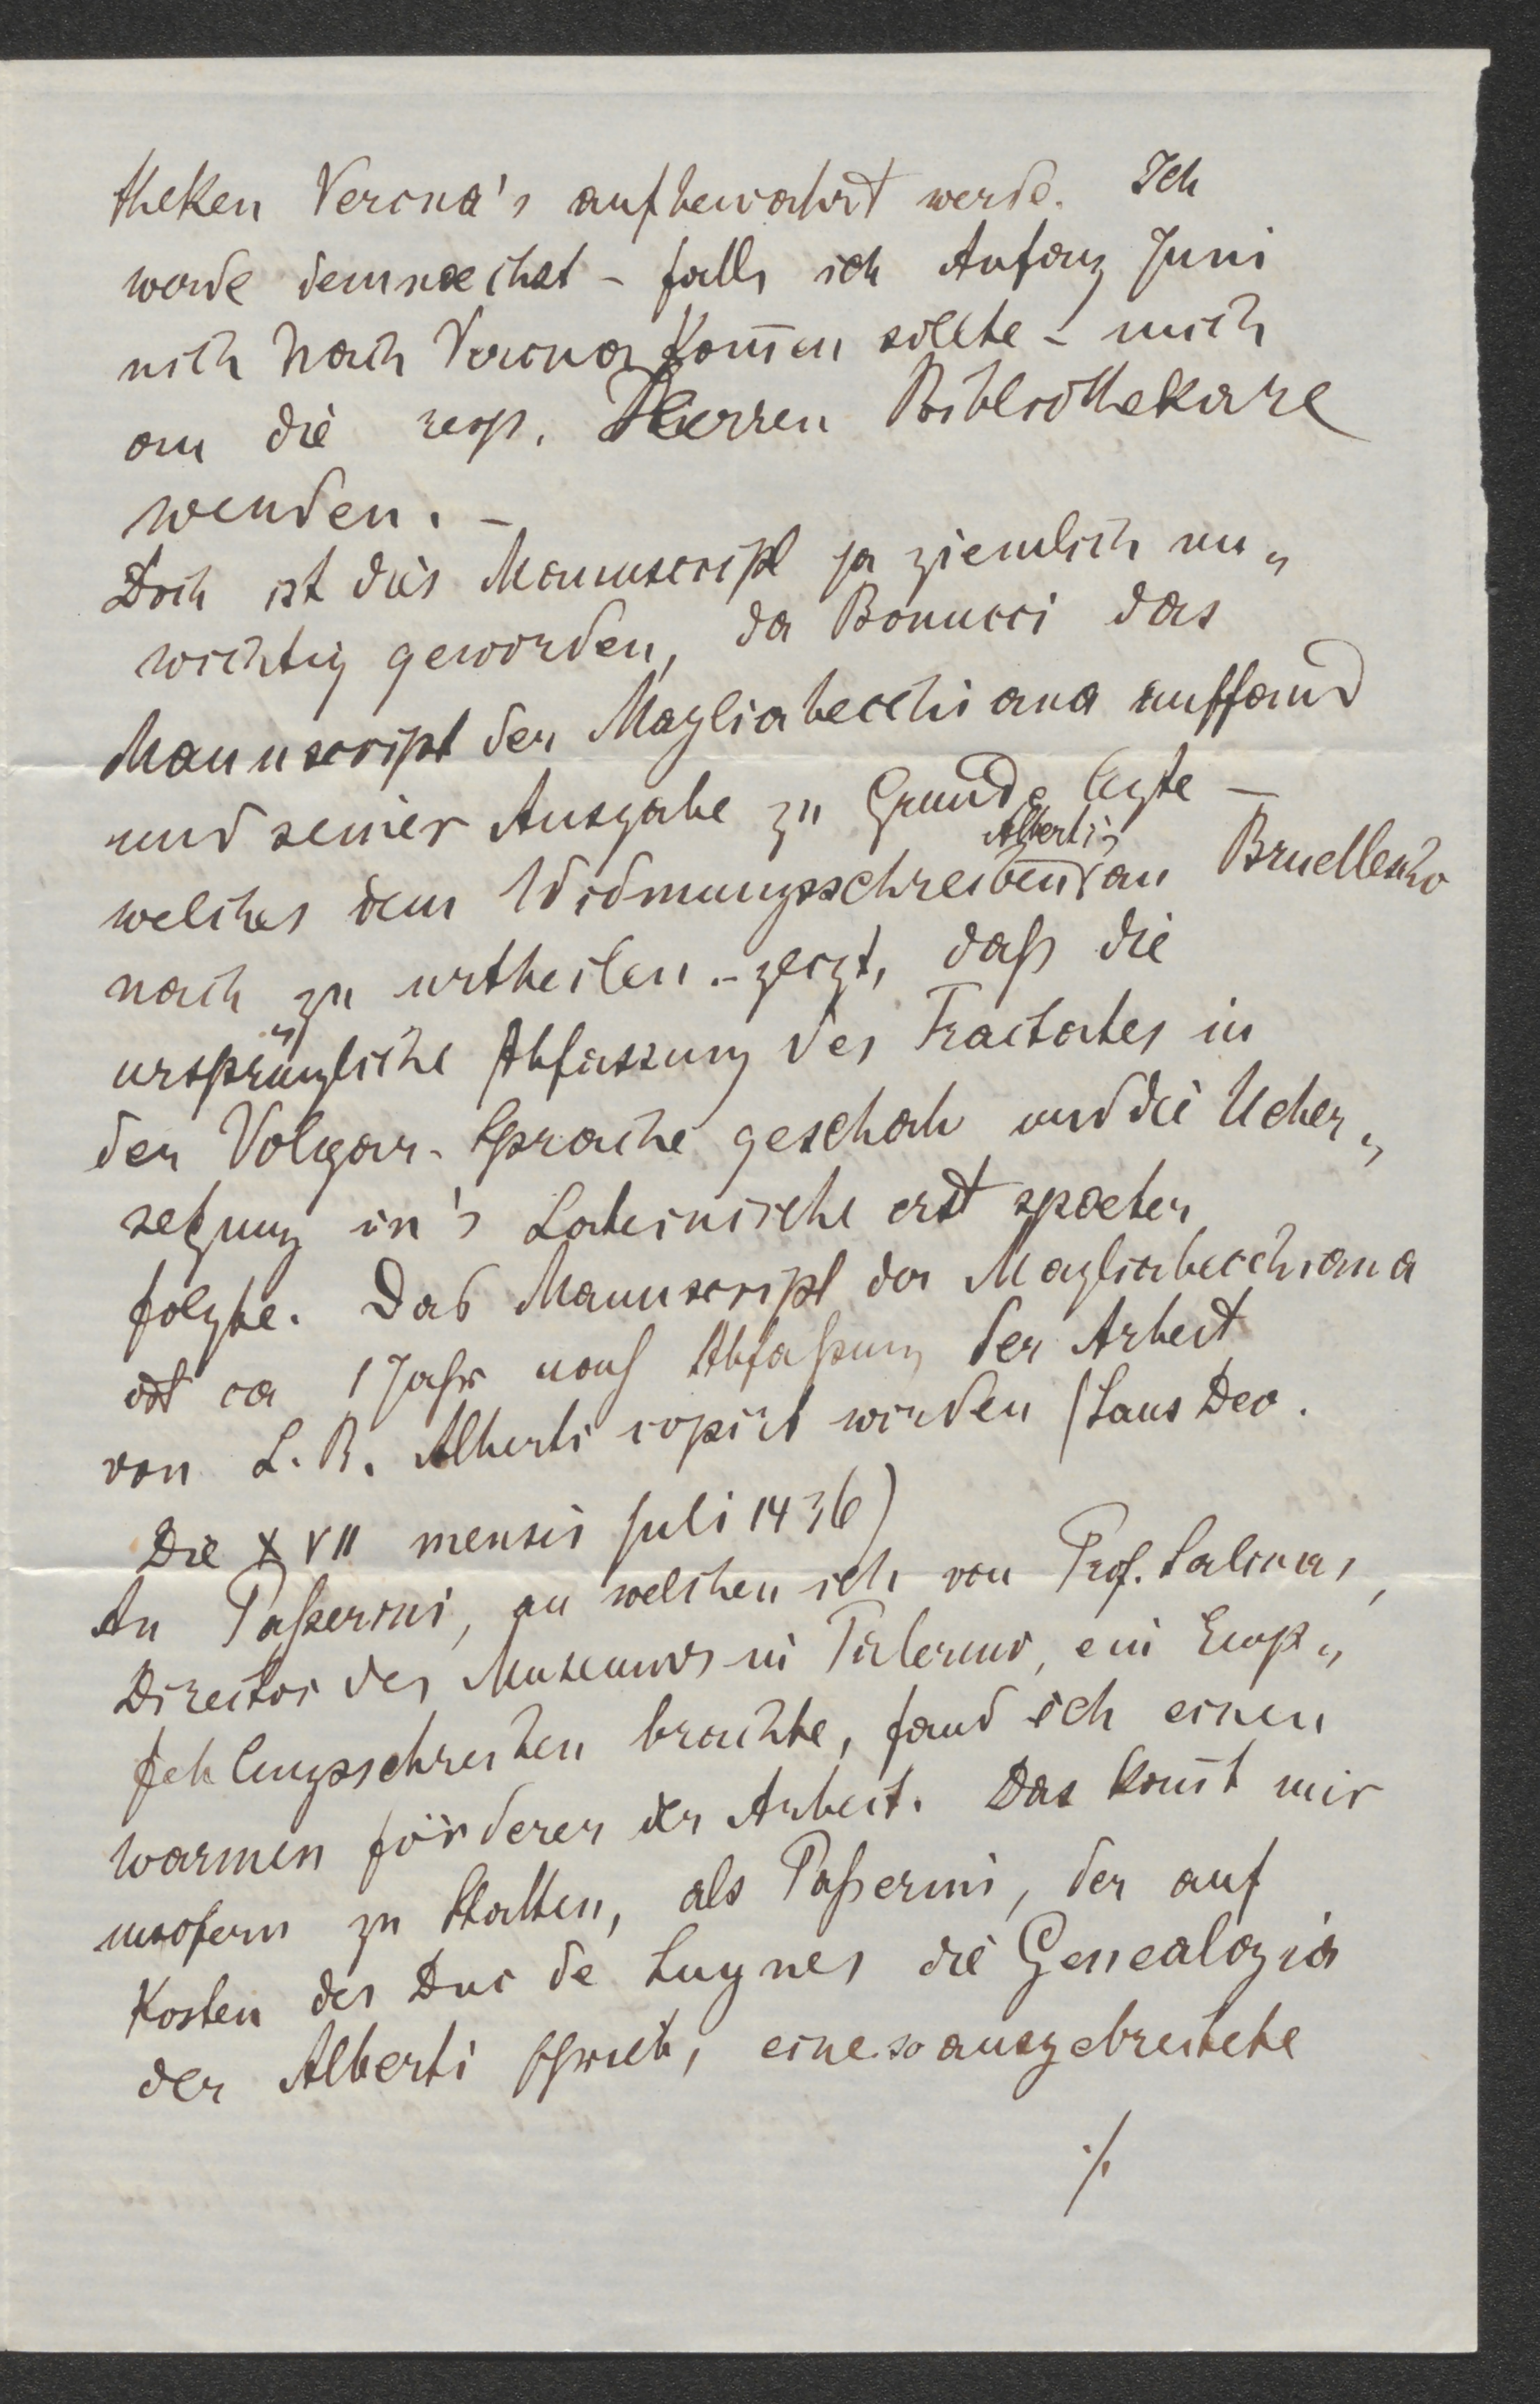 theken Verona's aufbewahrt werde. Ich
werde demnaechst - falls ich Anfang Juni
nich nach Verona kom̄en sollte - mich
an die resp. Herren Bibliothekare
wenden. -
Doch ist dies Manuscript ja ziemlich un„
wichtig geworden, da Bonucci das
Manuscript der Magliabecchiana auffand
und seiner Ausgabe zu Grunde legte -
welches dem Widmungsschreiben Alberti's an Bruellesco
nach zu urtheilen - zeigt, daß die
ursprüngliche Abfassung des Tractates in
der Volgar-Sprache geschah und die Ueber„
setzung in's Lateinische erst spaeter
folgte. Das Manuscript der Magliabecchiana
ist ca 1 Jahr nach Abfaßung der Arbeit
von L. B. Alberti copirt worden (Laus Deo.
Die XVII mensis Juli 1436)
An Paßerini, an welchen ich von Prof. Salinas,
Director des Museums in Palermo, ein Emp„
fehlungsschreiben brachte, fand ich einen
warmen förderer der Arbeit. Das kom̄t mir
insofern zu Statten, als Paßerini, der auf
Kosten des Duc de Luynes die Genealogia
der Alberti schrieb, eine so ausgebreitete
./.